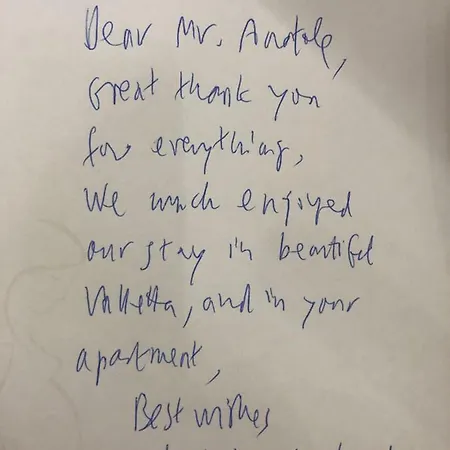 Dear Mr. Anatole,
Great thank you
for everything,
We much enjoyed
our stay in beautiful
Valletta, and in your
apartment,
Best wishes